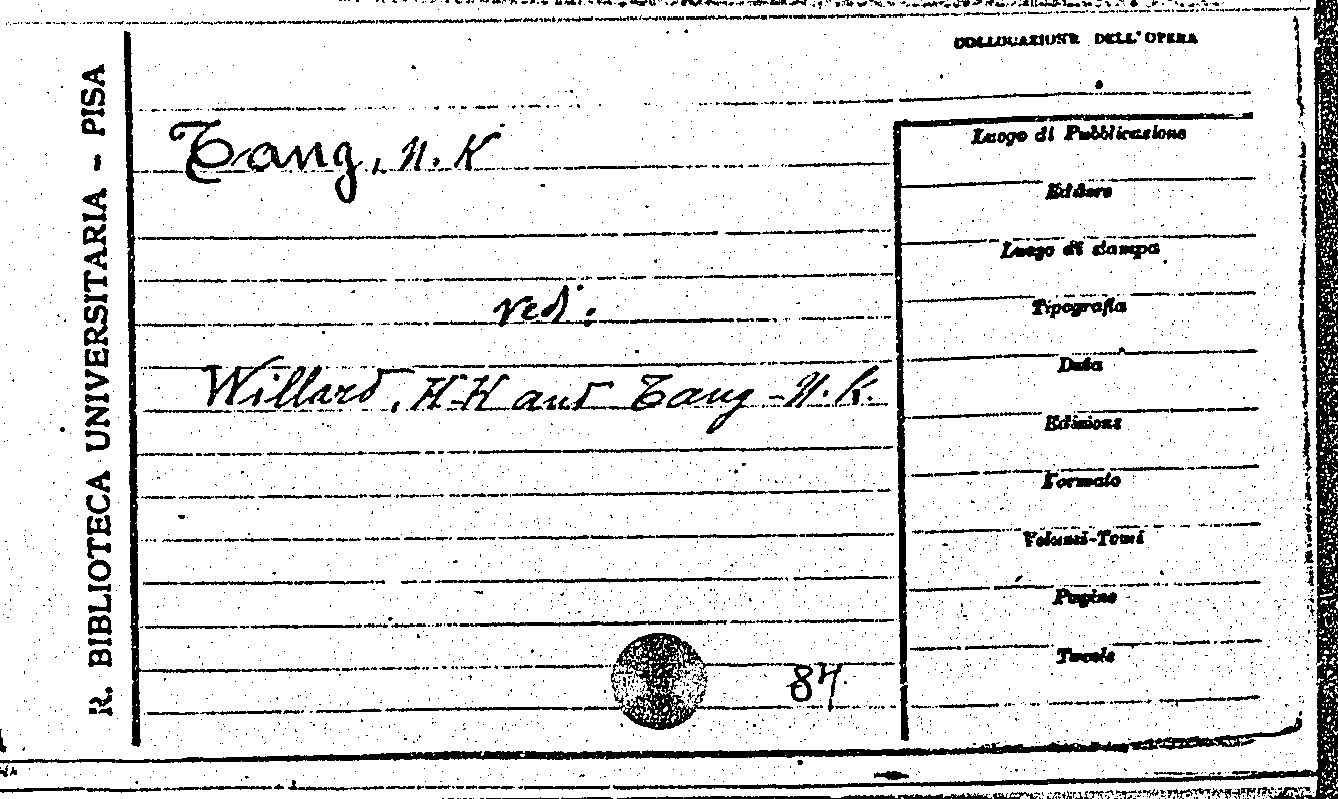 R. BIBLIOTECA UNIVERSITARIA - PISA
COLLOCAZIONE DELL'OPERA
Tang, N. K
vedi:
Willard, H-H and Tang - N. K.
84
Luogo di Pubblicazione
Editore
Luogo di stampa
Tipografia
Data
Edizione
Formato
Volumi-Tomi
Pagine
Tavole